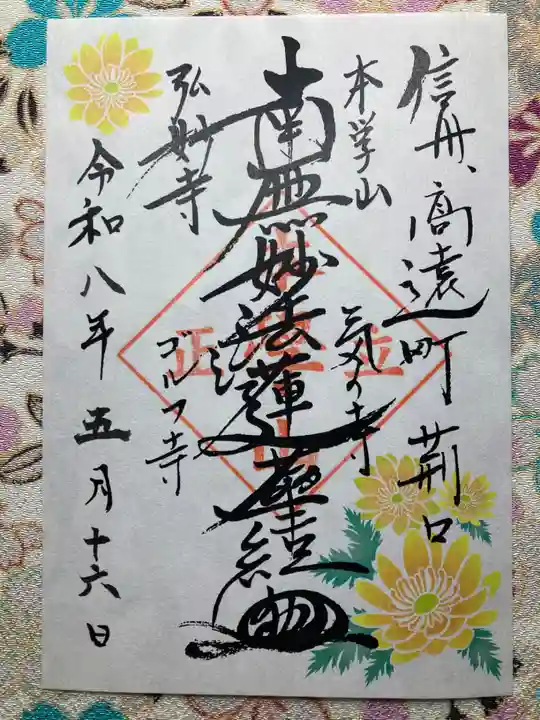 信州、高遠町荊口
本学山
気の寺
南無妙法蓮華経
弘妙寺
ゴルフ寺
令和八年五月十六日
正